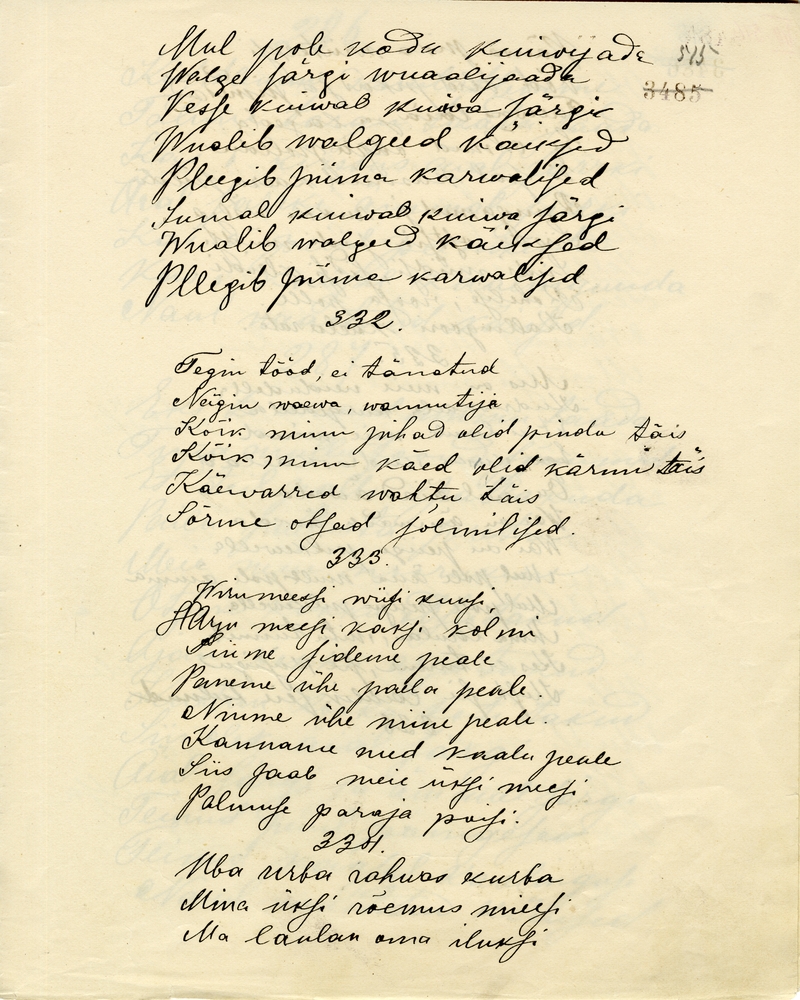 Mul pole kodu kuiwijada 515
Walge särgi wuaalijaada 3485
Vesse kuiwab kuiwa särgi
Wualib walgeed käiksed
Pleegib piima karwalised
Jumal kuiwab kuiwa särgi
Wualib walgeed käiksed
Pllegib piima karwalised
332.
Tegin tööd, ei tänatud
Nägin waewa, wannutije
Kõik minu pihad olid pindu täis
Kõik minu käed olid kärmi täis
Käewarred wahtu täis
Sõrme otsad sõlmilised.
333.
Wirumeessi wiisi kuusi,
Harju meesi kaksi kolmi
Piime sideme peale
Paneme ühe paela peale.
Nimme ühe nime peale.
Kanname need kaalu peale
Siis saab meie üksi meesi
Palmuse paraja poisi.
334.
Uba urba rahwas kurba
Mina üksi rõemus meesi
Ma laulan oma iluksi